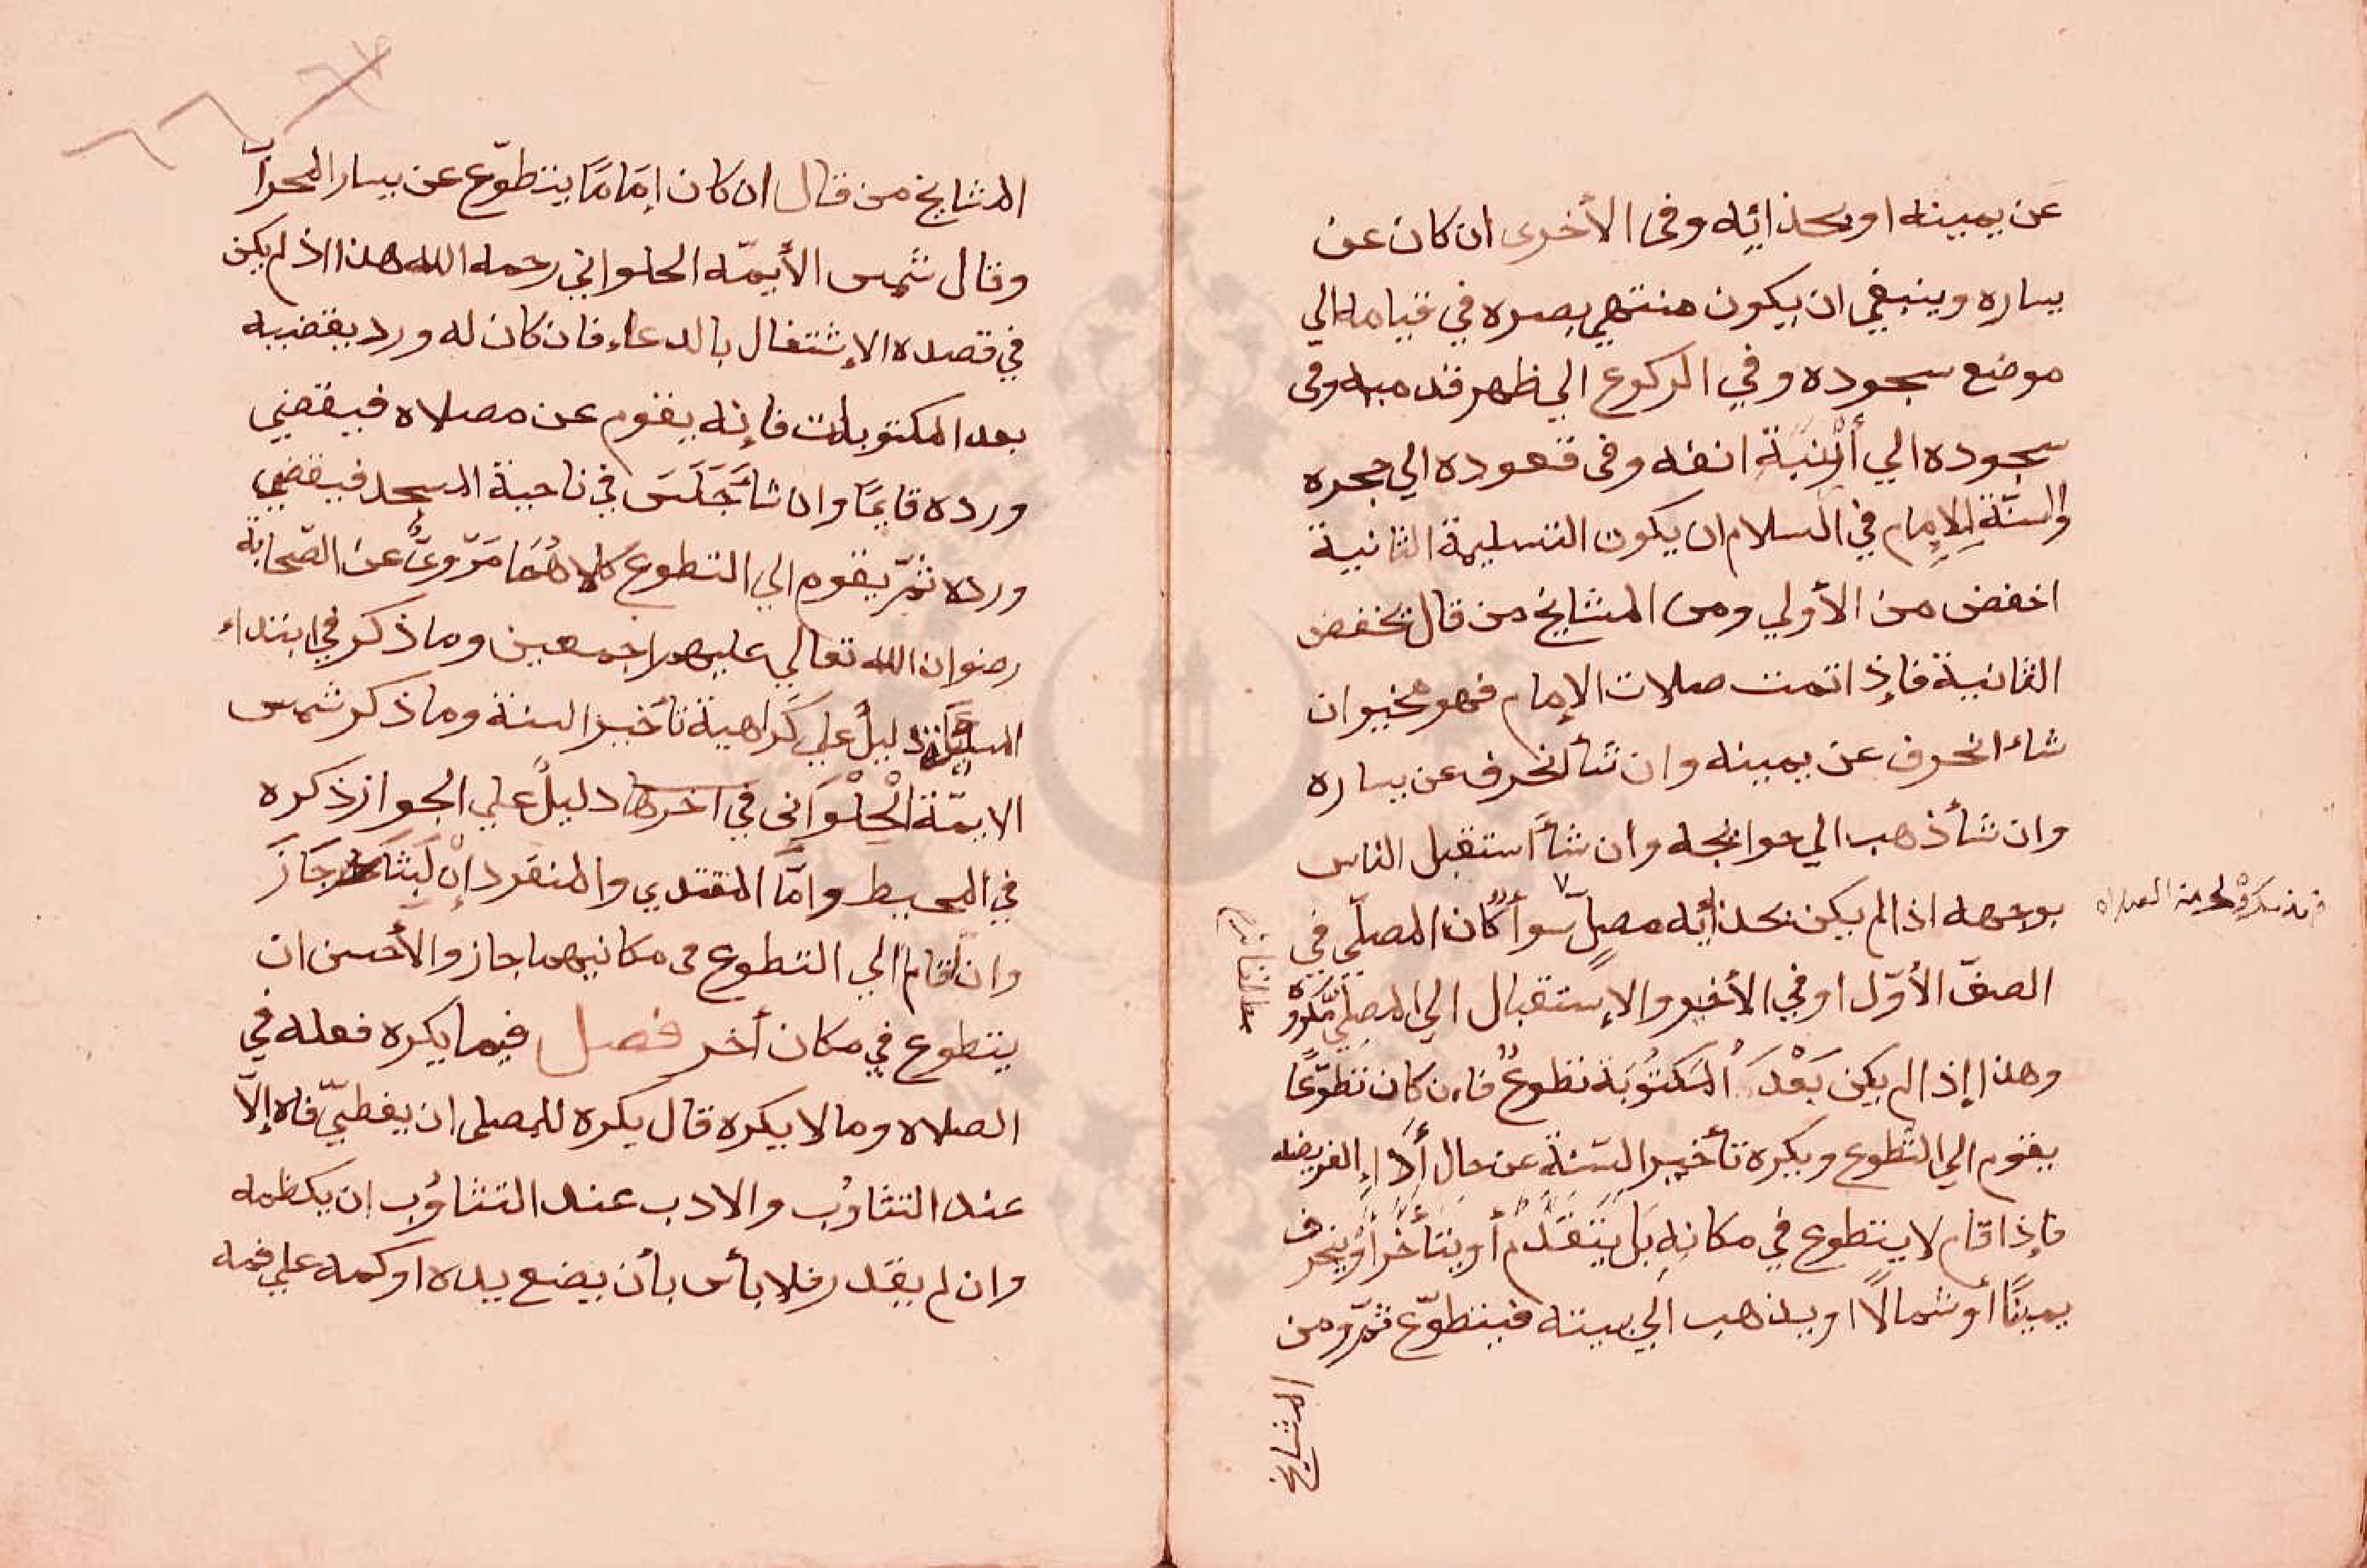 عن يمينه او بحذائه وفى الأخرى ان كان عن
يساره وينبغي ان يكون منتهي بصره في قيامه الي
موضع سجوده وفي الركوع الي ظهر قدميه وفى
سجوده الي أرنبة انفه وفى قعوده الي حجره
والسنّة للإمام في السلام ان يكون التسليمة الثانية
اخفض من الأولي ومن المشايخ من قال يخفض
الثانية فإذا تمت صلات الإمام فهو مخير ان
شاء انحرف عن يمينه وان شأ انحرف عن يساره
وان شأ ذهب الي حوائجه وان شأ استقبل الناس
بوجهه اذا لم يكن بحذائه مصلٍّ سوأ كان المصلّي في
الصفّ الأوّل او في الأخير والإستقبال الي المصلّي مكروه
وهذا إذا لم يكن بَعْدَ المكتُوبَة تطوعٌ فان كان تطوّعًا
يقوم الي التّطوع ويكره تأخير السّنة عن حال أداء الفريضه
فإذا قام لا يتطوع في مكانِهِ بَل يَتَقَدَّمُ أو يتأخّر أو ينحرف
يمينًا أو شمالًا او يذهب الي بيته فيتطوّع ثمّ ومن
المشايخ
المشايخ من قال ان كان إمَامًا يتطوّع عن يسار المحرآب
وقال شمس الأيمّه الحلواني رحمه الله هذا اذ لم يكن
في قصده الإشتغال بالدعاء فان كان له ورد يقضيه
بعد المكتوبات فإنه يقوم عن مصلاه فيقضي
ورده قايمًا وان شأ جَلَسَ في ناحية المسجد فيقضي
ورده ثمّ يقوم الي التطوع كلاهُمَا مَرْويٌّ عن الصّحابة
رضوان الله تعالي عليهم اجمعين وما ذكر في ابتداء
المسئلة دليلٌ علي كَراهية تأخير السنة وما ذكر شمس
الايمّة الْحلْوَانى في اخرها دليلٌ علي الجواز ذكره
في المحيط وامّا المقتدي والمنفرد إنْ لَبِثَا جَازَ
وان قاما الي التطوع فى مكانيهما جاز والأحسن ان
يتطوع في مكان أخر فصل فيما يكره فعله في
الصلاه وما لا يكره قال يكره للمصلى ان يغطيّ فاه إلاّ
عند التثاوُب والادب عند التثاوُب ان يكظمه
وان لم يقدر فلا بأس بأن يضع يده او كمه علي فمه